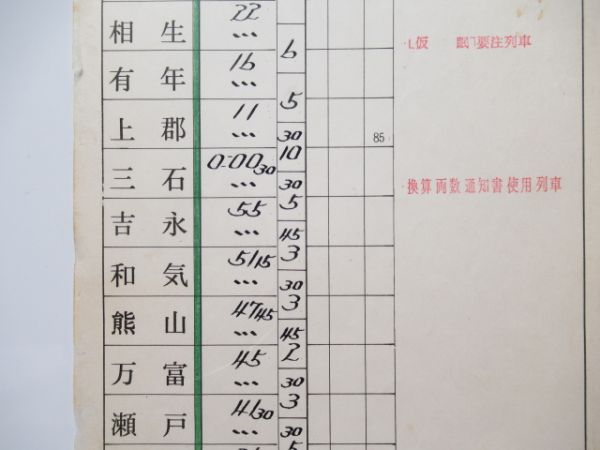 相生 22 ... 6
有年 16 ... 5
上郡 11 ... 30
三石 0-00 30 ... 10 30
吉永 55 ... 5 45
和気 51 15 ... 3 30
熊山 47 45 ... 3 45
万富 45 ... 2 30
瀬戸 41 30 ... 3 30
5
85
L仮 眠ㄱ要注列車
換算両数通知書使用列車